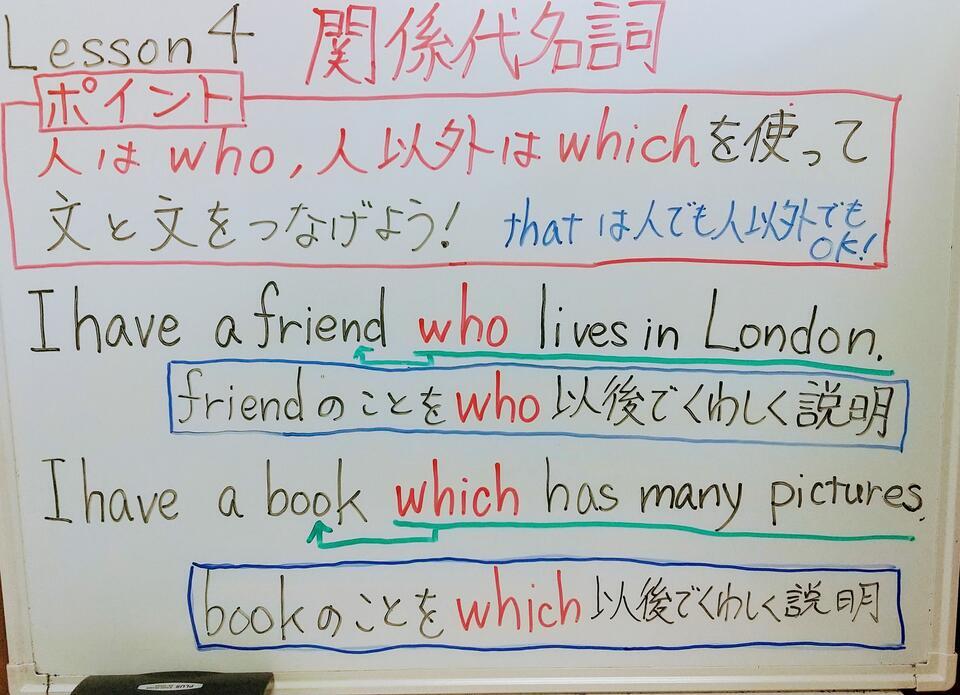 Lesson 4 関係代名詞
ポイント
人は who, 人以外は whichを使って
文と文をつなげよう!
thatは人でも人以外でも
OK!
I have a friend who lives in London.
friendのことをwho以後でくわしく説明
I have a book which has many pictures.
bookのことをwhich以後でくわしく説明
PLUS